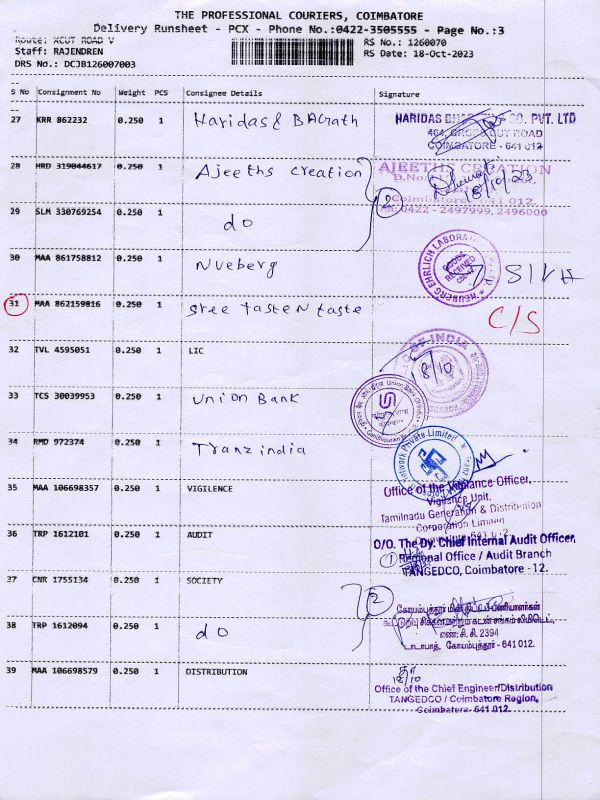 THE PROFESSIONAL COURIERS, COIMBATORE
Delivery Runsheet - PCX - Phone No.:0422-3505555 - Page No.:3
Route: XCUT ROAD V
RS No.: 1260070
Staff: RAJENDREN
RS Date: 18-Oct-2023
DRS No.: DCJB126007003
S No Consignment No Weight PCS Consignee Details Signature
27 KRR 862232 0.250 1 Haridas & BAGrath
HARIDAS CO. PVT. LTD
CROSS CUT ROAD
COIMBATORE - 641 012
28 HRD 319044617 0.250 1 Ajeeths creation
AJEETHS CREATION
D.No.
Coimbatore 641 012.
0422 - 2497999, 2496000
18/10/23
2
29 SLM 330769254 0.250 1 do
30 MAA 861758812 0.250 1 Nueberg
NEUBERG EHRLICH LABORATORY
GOODS RECEIVED
31 MAA 862159816 0.250 1 sree tasteN taste
C/S
32 TVL 4595051 0.250 1 LIC
OF INDIA
18/10
33 TCS 30039953 0.250 1 Union Bank
Union Bank
34 RMD 972374 0.250 1 Tranzindia
Network Private Limited
35 MAA 106698357 0.250 1 VIGILENCE
Office of the Vigilance Officer,
Vigilance Unit,
Tamilnadu Generation & Distribution
Corporation Limited
36 TRP 1612101 0.250 1 AUDIT
O/O. The Dy. Chief Internal Audit Officer,
Regional Office / Audit Branch
TANGEDCO, Coimbatore - 12.
1
37 CNR 1755134 0.250 1 SOCIETY
2
கோயமுத்தூர் மின்
எண்: சி. சி. 2394
டாடாபாத், கோயமுத்தூர் - 641 012.
38 TRP 1612094 0.250 1 do
39 MAA 106698579 0.250 1 DISTRIBUTION
18/10
Office of the Chief Engineer/Distribution
TANGEDCO / Coimbatore Region,
Coimbatore- 641 012.